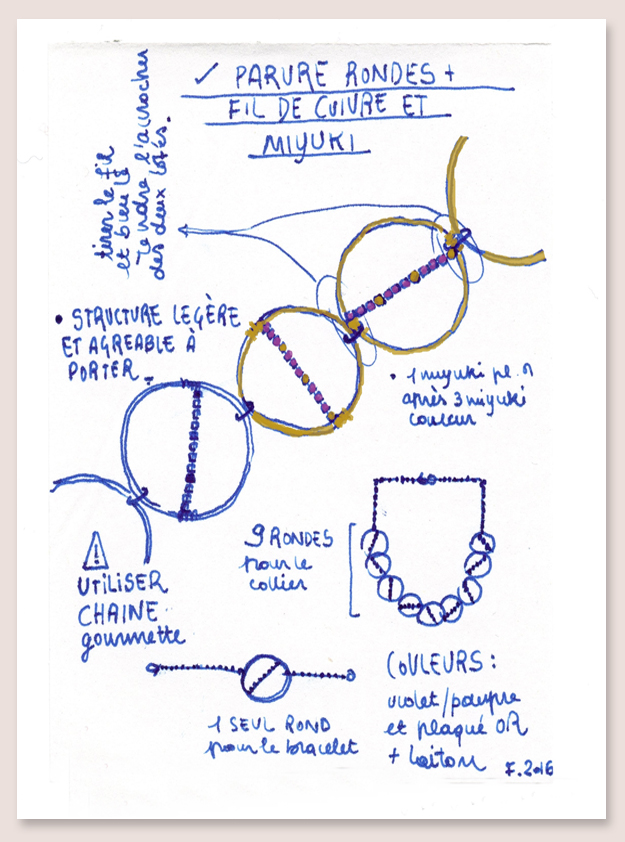 ✓ PARURE RONDES +
FIL DE CUIVRE ET
MIYUKI
tirer le fil
et bien le
tendre l'accrocher
des deux côtés.
• STRUCTURE LEGÈRE
ET AGREABLE À
PORTER.
• 1 miyuki pl. O
après 3 miyuki
couleur
9 RONDES
pour le
collier
UTILISER
CHAINE
gourmette
1 SEUL ROND
pour le bracelet
COULEURS :
violet/pourpre
et plaqué OR
+ laiton
F.2016